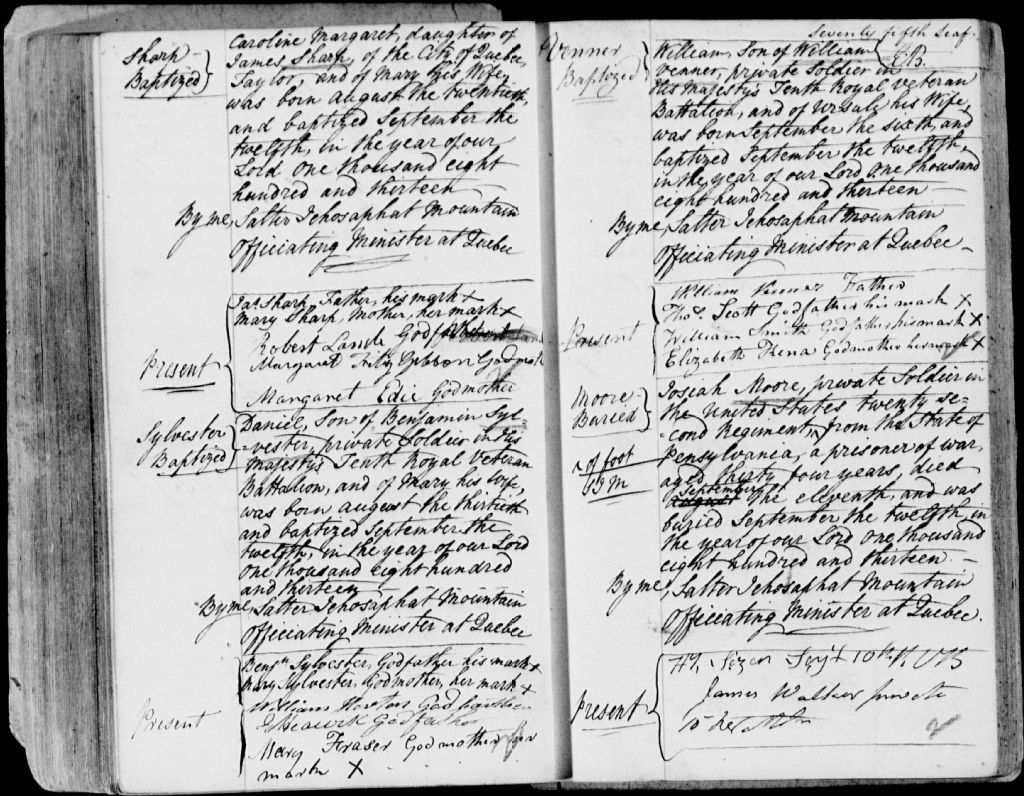 Sharp
Baptized
Caroline Margaret, daughter of
James Sharp, of the City of Quebec,
Taylor, and of Mary his Wife,
was born August the twentieth,
and baptized September the
twelfth, in the year of our
Lord One thousand eight
hundred and thirteen
By me, Salter Jehosaphat Mountain
Officiating Minister at Quebec
Present
Jas Sharp, Father, his mark X
Mary Sharp, Mother, her mark X
Robert Lande
Margaret Fitz Gibbon Godmoth
Margaret Edie Godmother
Sylvester
Baptized
Daniel, Son of Benjamin Syl-
-vester, private Soldier in His
Majesty's Tenth Royal Veteran
Battalion, and of Mary his Wife,
was born August the thirtieth
and baptized September the
twelfth, in the year of our Lord
One thousand eight hundred
and thirteen
By me, Salter Jehosaphat Mountain
Officiating Minister at Quebec
Present
Benjn Sylvester, Godfather his mark X
Mary Sylvester, Godmother, her mark X
William
Godfather
Mary Fraser Godmother her
mark X
Seventy fifth Leaf.
Venner
Baptized
William, Son of William
Venner, private Soldier in
His Majesty's Tenth Royal Veteran
Battalion, and of Ursule his Wife,
was born September the sixth, and
baptized September the twelfth,
in the year of our Lord One thousand
eight hundred and thirteen
By me, Salter Jehosaphat Mountain
Officiating Minister at Quebec
Present
William Venner Father
Thos. Scott Godfather his mark X
William Smith Godfather his mark X
Elizabeth Godmother her mark X
Moore
Buried
Josiah Moore, private Soldier in
the United States twenty se-
cond Regiment, ^ from the State of
Pensylvania, a prisoner of war,
^ of foot
SJM
aged thirty four years, died
September
August the eleventh, and was
buried September the twelfth, in
the year of our Lord One thousand
eight hundred and thirteen
By me, Salter Jehosaphat Mountain
Officiating Minister at Quebec.
Present
Serjt 10th R V B
James Walker private
2